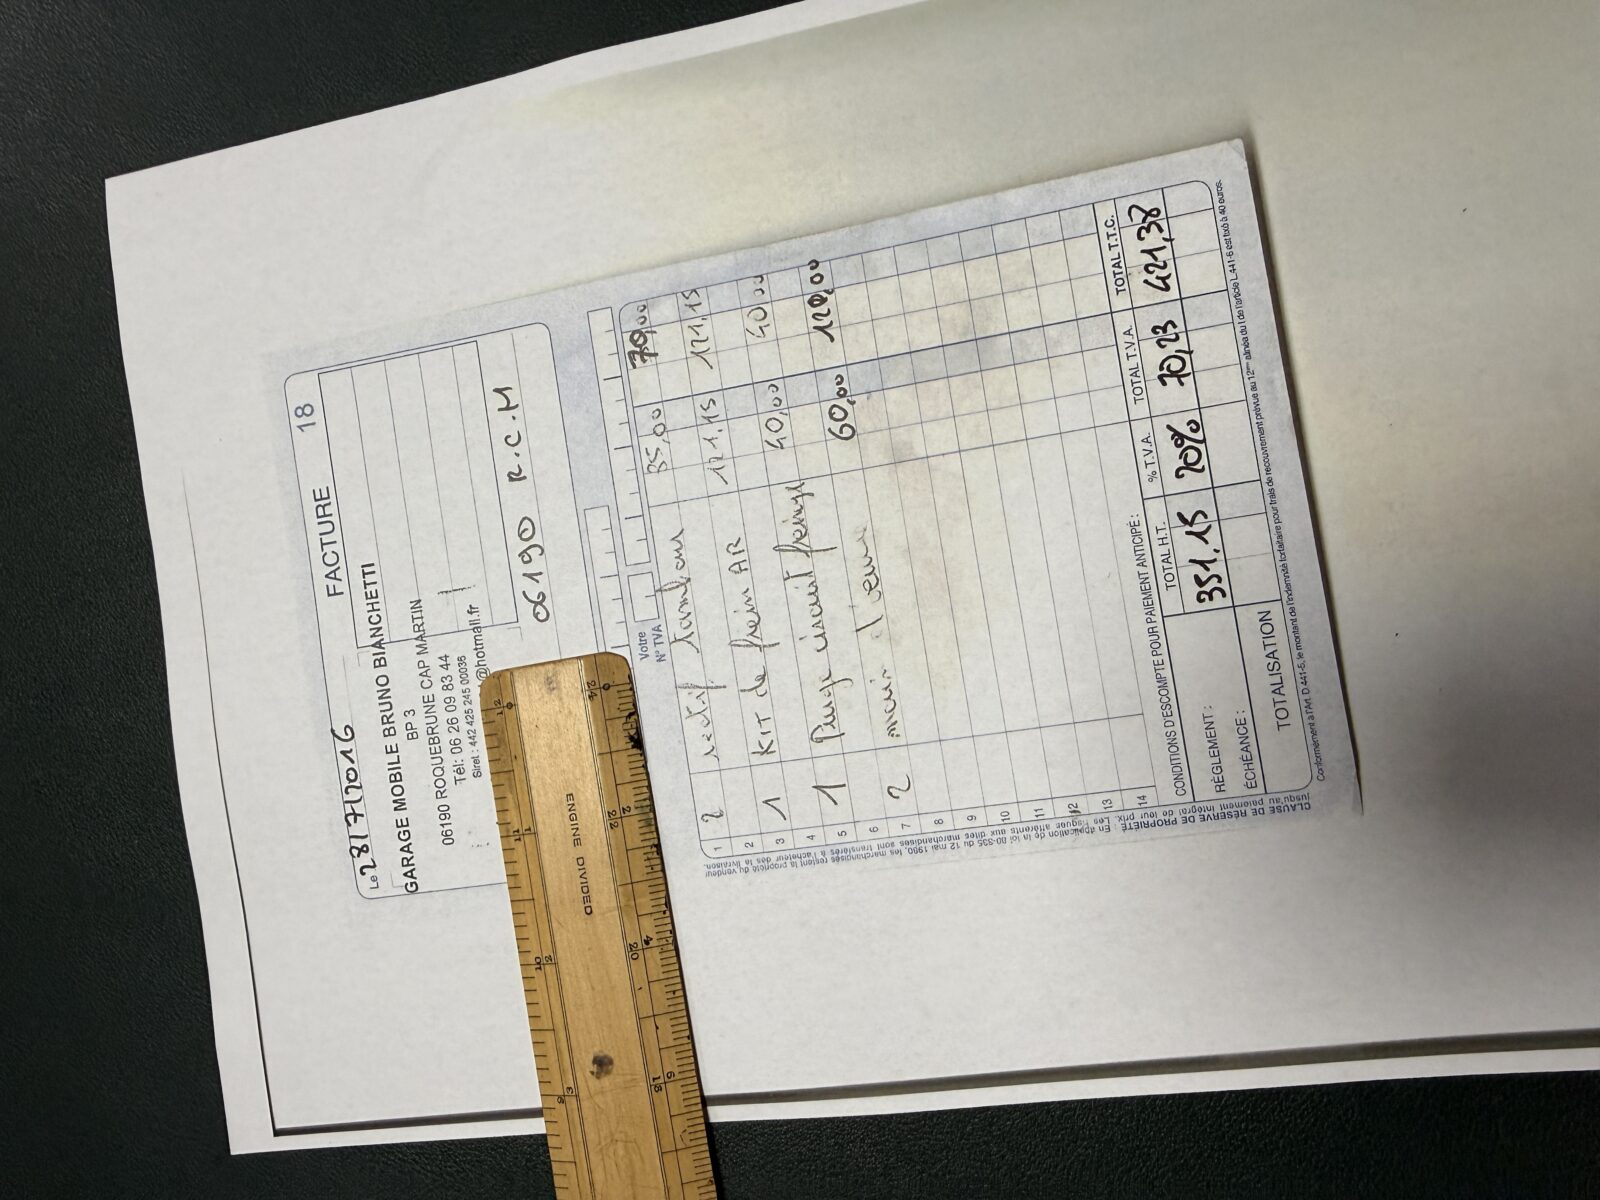 FACTURE 18
Le 28/7/2016
GARAGE MOBILE BRUNO BIANCHETTI
BP 3
06190 ROQUEBRUNE CAP MARTIN
Tél: 06 26 09 83 44
Siret : 442 425 245 00036
@hotmail.fr
06190 R.C.M
Votre
N° TVA
1 2 rectif tambour 35,00 70,00
2 1 KIT de frein AR 121.15 121.15
3
4 1 Purge circuit freinage 40,00 40,00
5
6 2 main d'oeuvre 60,00 120,00
7
8
9
10
11
12
13
14
CONDITIONS D'ESCOMPTE POUR PAIEMENT ANTICIPÉ :
RÈGLEMENT :
ÉCHÉANCE :
TOTAL H.T. % T.V.A. TOTAL T.V.A. TOTAL T.T.C.
351.15 20% 70,23 421,38
TOTALISATION
Conformément à l'Art. D.441-5, le montant de l'indemnité forfaitaire pour frais de recouvrement prévue au 12ème alinéa du I de l'article L.441-6 est fixé à 40 euros.
CLAUSE DE RÉSERVE DE PROPRIÉTÉ : En application de la loi 80-335 du 12 mai 1980, les marchandises restent la propriété du vendeur
jusqu'au paiement intégral de leur prix. Les risques afférents aux dites marchandises sont transférés à l'acheteur dès la livraison.
ENGINE DIVIDED